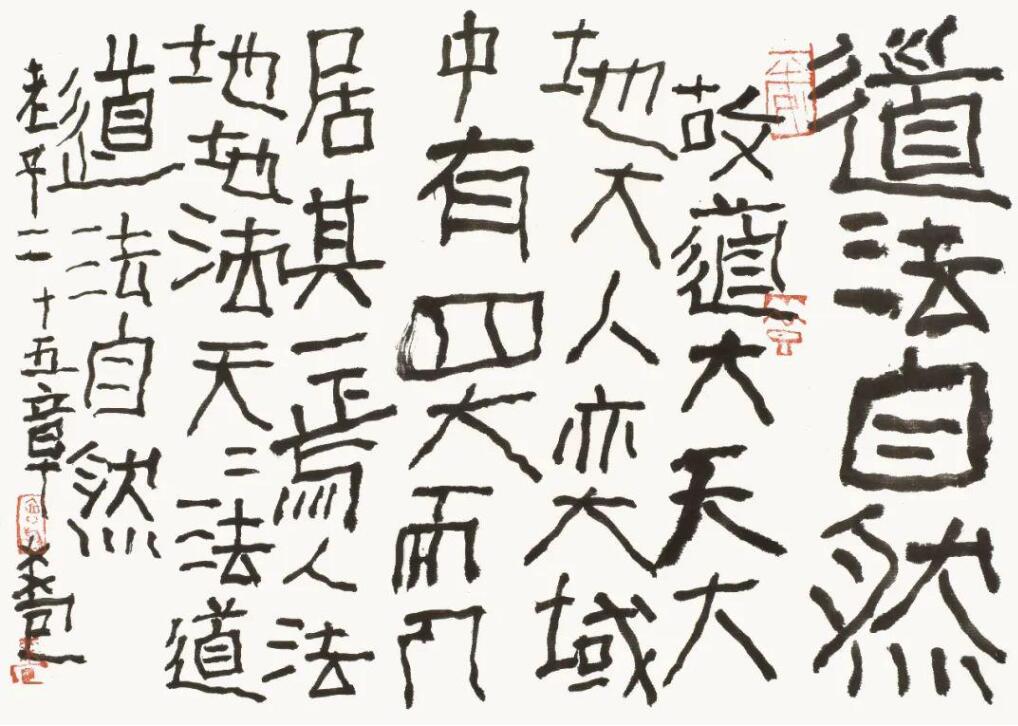 道法自然
故道大天大
地大人亦大域
中有四大而
居其一焉人法
地地法天々法道
道法自然
老子二十五章